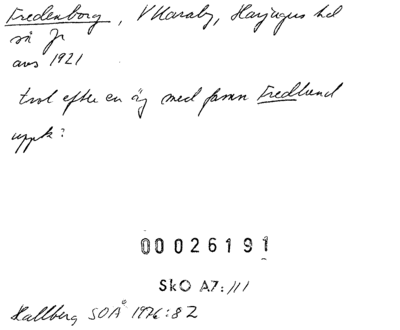 Fredenborg, V Karaby, Harjagers hd
så Jr
avs 1921
trol efter en äg med famn Fredlund
uppk?
00026191
SkO A7:111
Hallberg SOÅ 1976:82